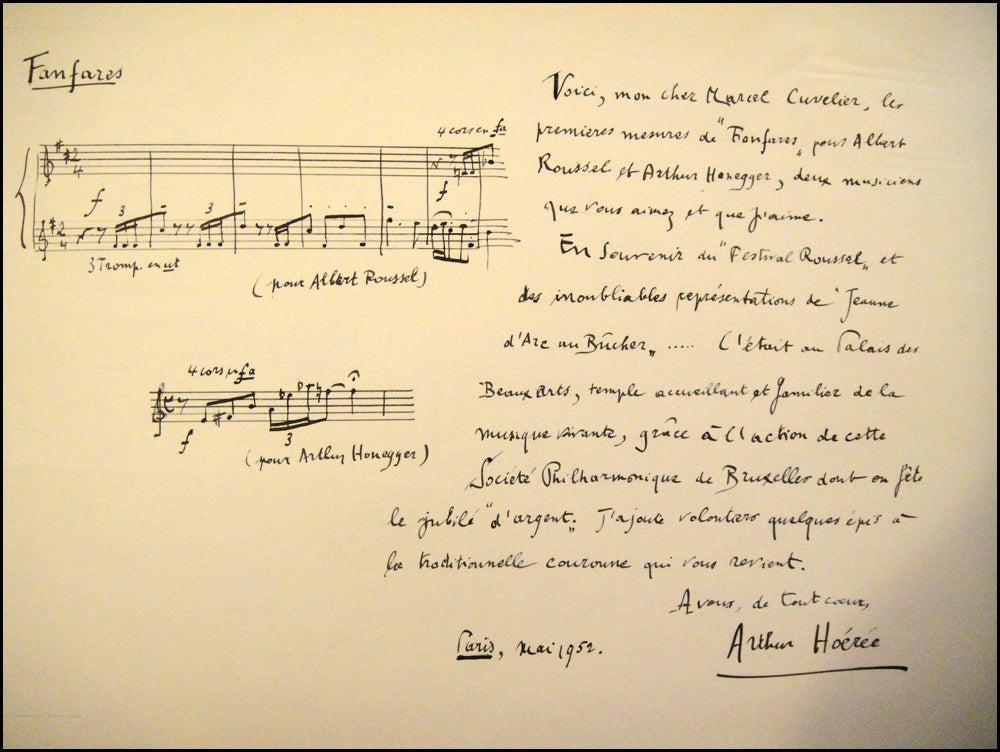 Fanfares
4 cors en fa
f
f
3
3
3 Tromp. en ut
(pour Albert Roussel)
4 cors en fa
f
3
(pour Arthur Honegger)
Voici, mon cher Marcel Cuvelier, les
premières mesures de "Fanfares" pour Albert
Roussel et Arthur Honegger, deux musiciens
que vous aimez et que j'aime.
En souvenir du "Festival Roussel" et
des inoubliables représentations de "Jeanne
d'Arc au Bûcher" ..... C'était au Palais des
Beaux Arts, temple accueillant et familier de la
musique vivante, grâce à l'action de cette
Société Philharmonique de Bruxelles dont on fête
le jubilé "d'argent". J'ajoute volontiers quelques épis à
la traditionnelle couronne qui vous revient.
A vous, de tout cœur,
Arthur Hoérée
Paris, mai 1952.